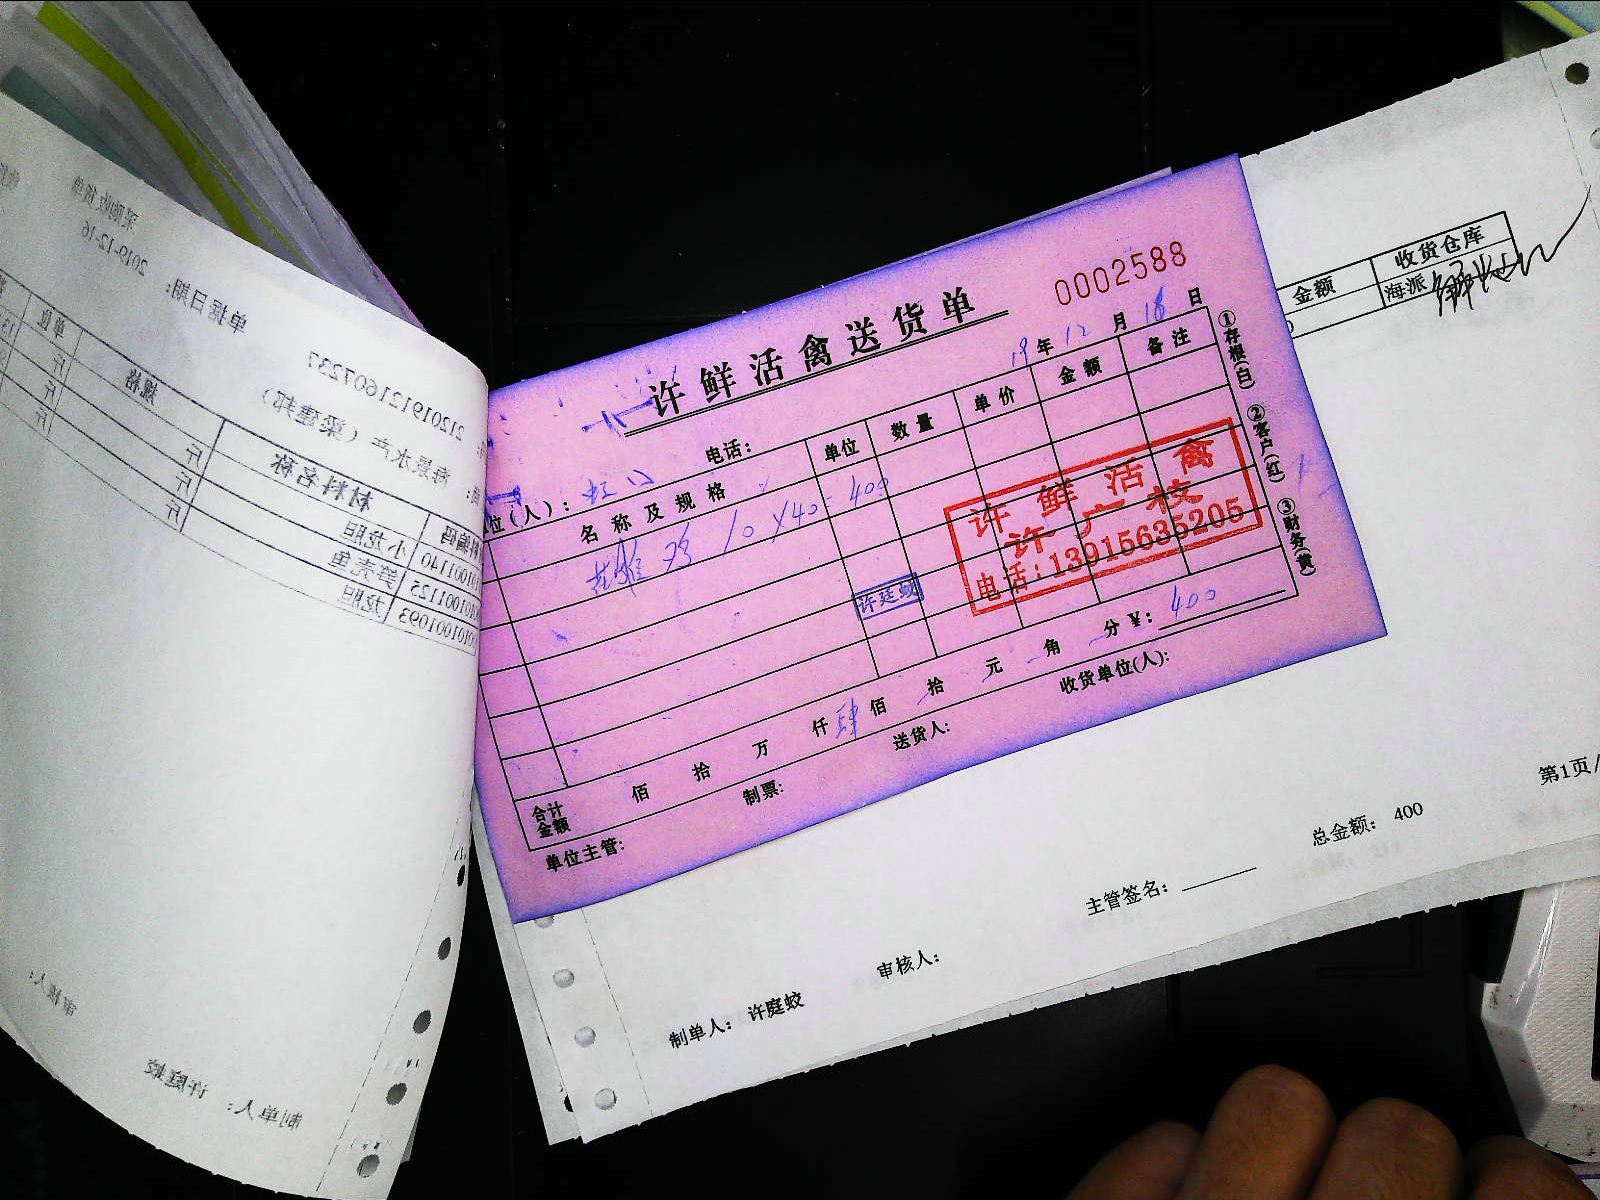 许鲜活禽送货单
0002588
19年12月18日
位(人): 虹口 电话:
名称及规格 单位 数量 单价 金额 备注
雄鸡 10×40=400
许鲜活禽
许广校
电话:13915635205
许廷蛟
合计金额 佰 拾 万 仟 肆佰 拾 元 角 分 ¥: 400
单位主管: 制票: 送货人: 收货单位(人):
①存根(白) ②客户(红) ③财务(黄)
金额 收货仓库
海派
第1页/
总金额: 400
主管签名:
审核人:
制单人: 许庭蛟
采购收货单
单据日期: 2019-12-16
212019121607237
海景水产（梁建邦）
材料名称 规格 单位
01001140 小龙胆 斤
01001125 弹壳鱼 斤
0101001093 龙胆 斤
审核人:
制单人: 许庭蛟